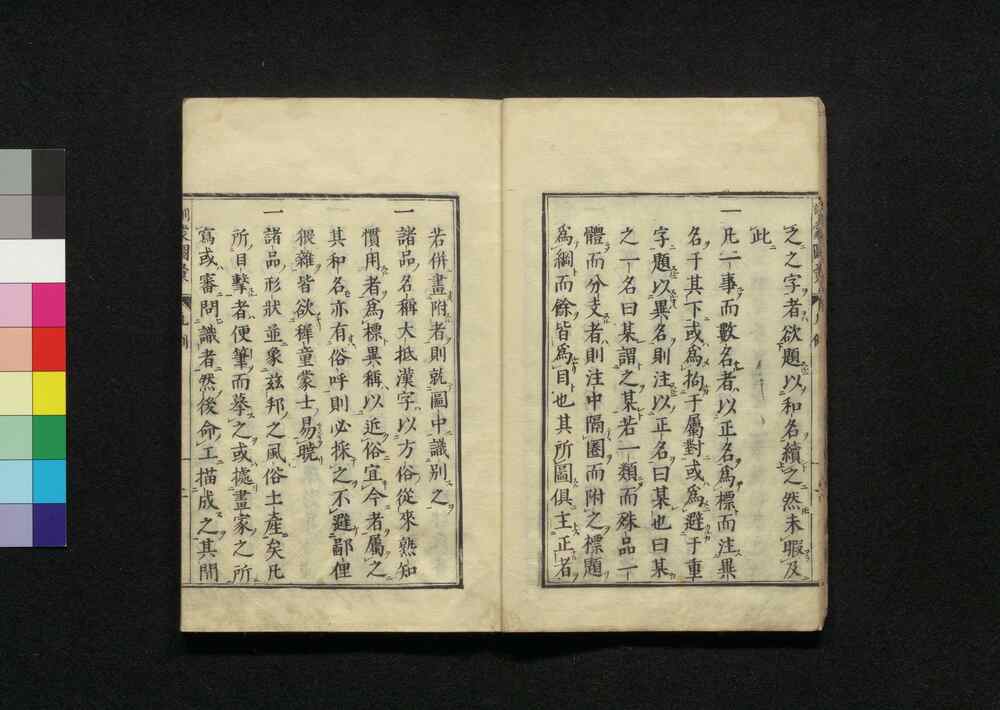 乏之字者欲題以和名續之然未暇及
此
一凡一事而數名者以正名爲標而注異
名于其下或爲拘于屬對或爲避于重
字題以異名則注以正名曰某也曰某
之一名曰某謂之某若一類而殊品一
體而分支者則注中隔圏而附之標題
爲綱而餘皆爲目也其所圖俱主正者
若併畫附者則就圖中識別之
一諸品名稱大抵漢字以方俗從來熟知
慣用者爲標異稱以近俗宜今者屬之
其和名亦有俗呼則必採之不避鄙俚
猥雜皆欲穉童蒙士易曉
一諸品形狀並象茲邦之風俗土產矣凡
所目擊者便筆而摹之或據畫家之所
寫或審問識者然後命工描成之其間
訓蒙圖彙 凡例